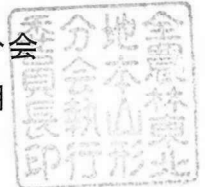 会
全農林東北
地本山形
分会執行
委員長印